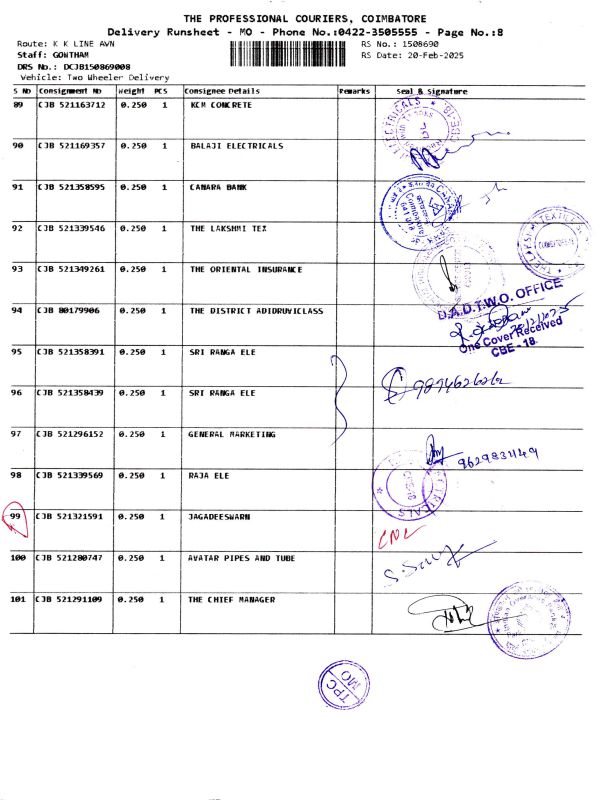 THE PROFESSIONAL COURIERS, COIMBATORE
Delivery Runsheet - MO - Phone No.:0422-3505555 - Page No.:8
Route: K K LINE AVN RS No.: 1508690
Staff: GOWTHAM RS Date: 20-Feb-2025
DRS No.: DCJB150869008
Vehicle: Two Wheeler Delivery
S No Consignment No Weight PCS Consignee Details Remarks Seal & Signature
89 CJB 521163712 0.250 1 KCM CONCRETE
90 CJB 521169357 0.250 1 BALAJI ELECTRICALS
91 CJB 521358595 0.250 1 CANARA BANK
92 CJB 521339546 0.250 1 THE LAKSHMI TEX
93 CJB 521349261 0.250 1 THE ORIENTAL INSURANCE
D.A.D.T.W.O. OFFICE
94 CJB 80179906 0.250 1 THE DISTRICT ADIDRUVICLASS
One Cover Received
CBE - 18
95 CJB 521358391 0.250 1 SRI RANGA ELE
96 CJB 521358439 0.250 1 SRI RANGA ELE
97 CJB 521296152 0.250 1 GENERAL MARKETING
98 CJB 521339569 0.250 1 RAJA ELE
99 CJB 521321591 0.250 1 JAGADEESWARN
100 CJB 521280747 0.250 1 AVATAR PIPES AND TUBE
101 CJB 521291109 0.250 1 THE CHIEF MANAGER
TPC
MO